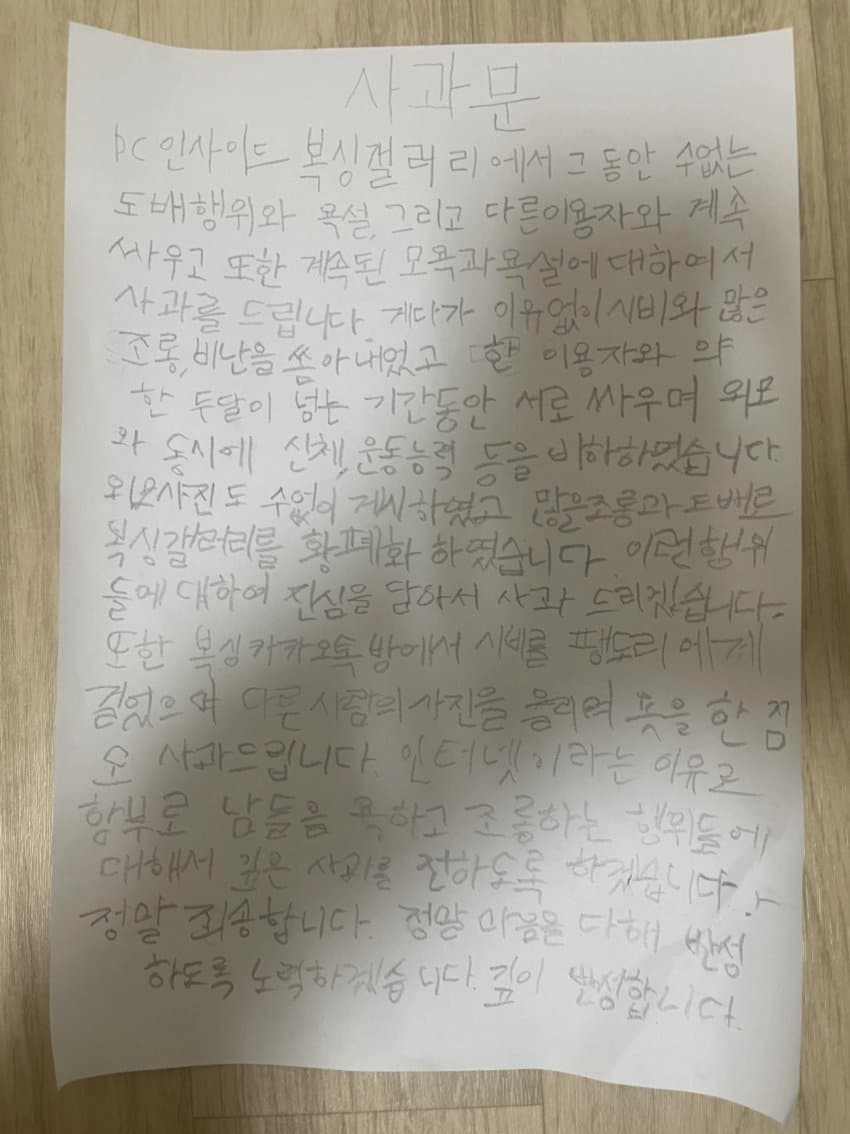 사과문
DC인사이드 복싱갤러리에서 그동안 수없는
도배행위와 욕설, 그리고 다른이용자와 계속
싸우고 또한 계속된 모욕과욕설에 대하여서
사과를 드립니다. 게다가 이유없이 시비와 많은
조롱, 비난을 쏟아내었고 한 이용자와 약
한 두달이 넘는 기간동안 서로 싸우며 외모
와 동시에 신체, 운동능력 등을 비하하였습니다.
외모사진도 수없이 게시하였고 많은조롱과 도배로
복싱갤러리를 황폐화 하였습니다. 이런행위
들에 대하여 진심을 담아서 사과 드리겠습니다.
또한 복싱카카오톡방에서 시비를 팽도리에게
걸었으며 다른사람의사진을 올리며 욕을 한 점
또 사과드립니다. 인터넷이라는 이유로
함부로 남들을 욕하고 조롱하는 행위들에
대해서 깊은 사과를 전하도록 하겠습니다.
정말 죄송합니다. 정말 마음을 다해 반성
하도록 노력하겠습니다. 깊이 반성합니다.